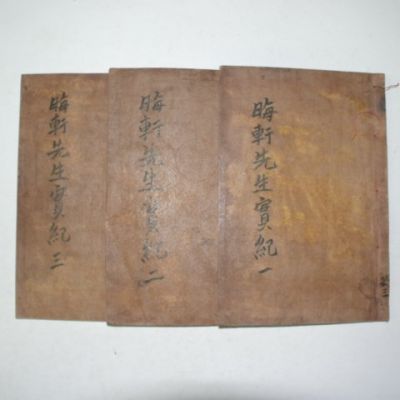 晦軒先生實紀一
晦軒先生實紀二
晦軒先生實紀三